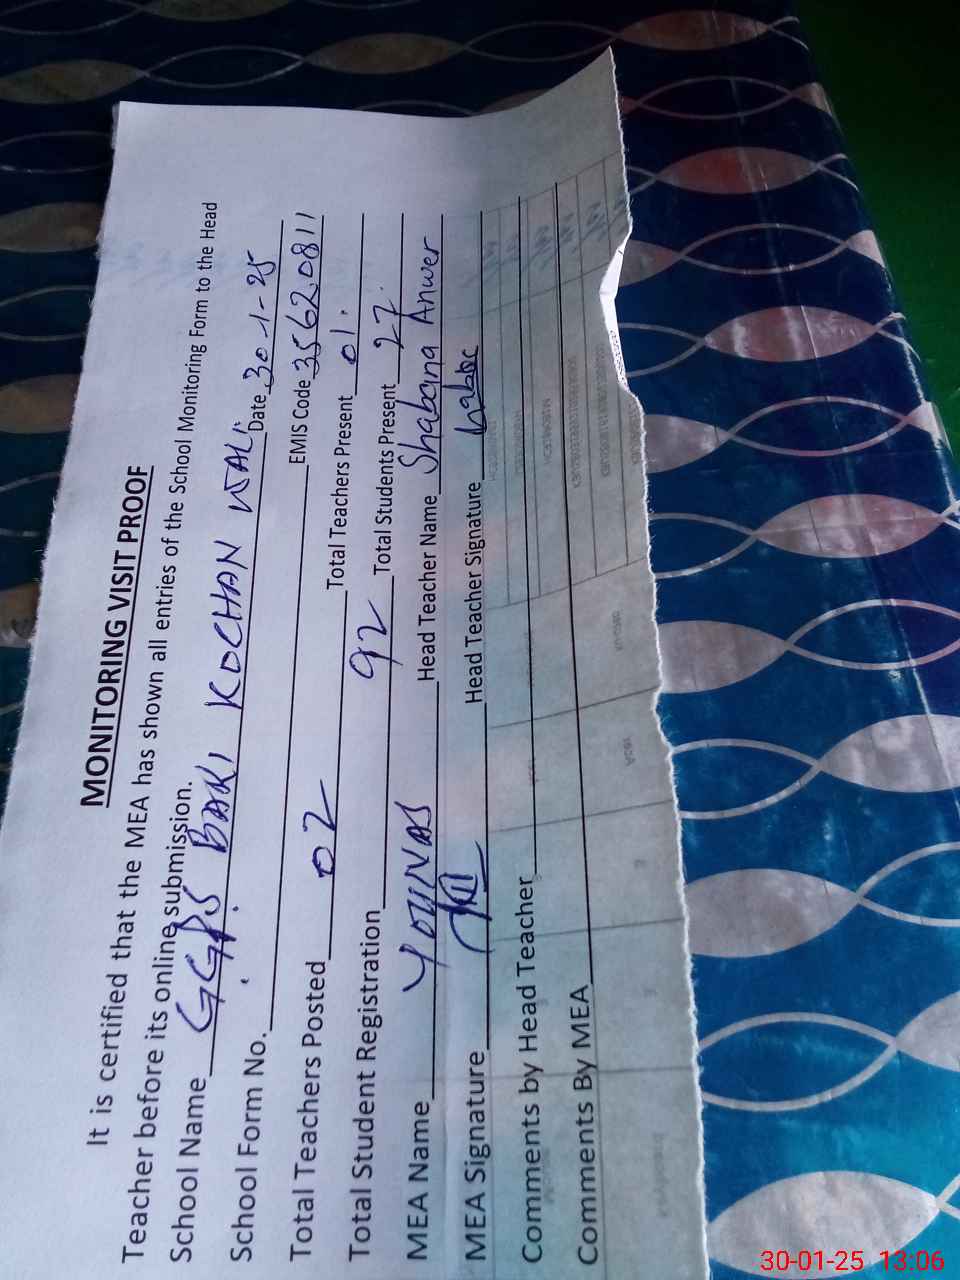 MONITORING VISIT PROOF
It is certified that the MEA has shown all entries of the School Monitoring Form to the Head
Teacher before its online submission.
School Name GGPS BARI KOCHAN WALI. Date 30-1-25
School Form No. EMIS Code 35620811
Total Teachers Posted 02 Total Teachers Present 01.
Total Student Registration 92 Total Students Present 27.
MEA Name YOUNAS Head Teacher Name Shabana Anwer
MEA Signature Head Teacher Signature
Comments by Head Teacher
Comments By MEA
30-01-25 13:06